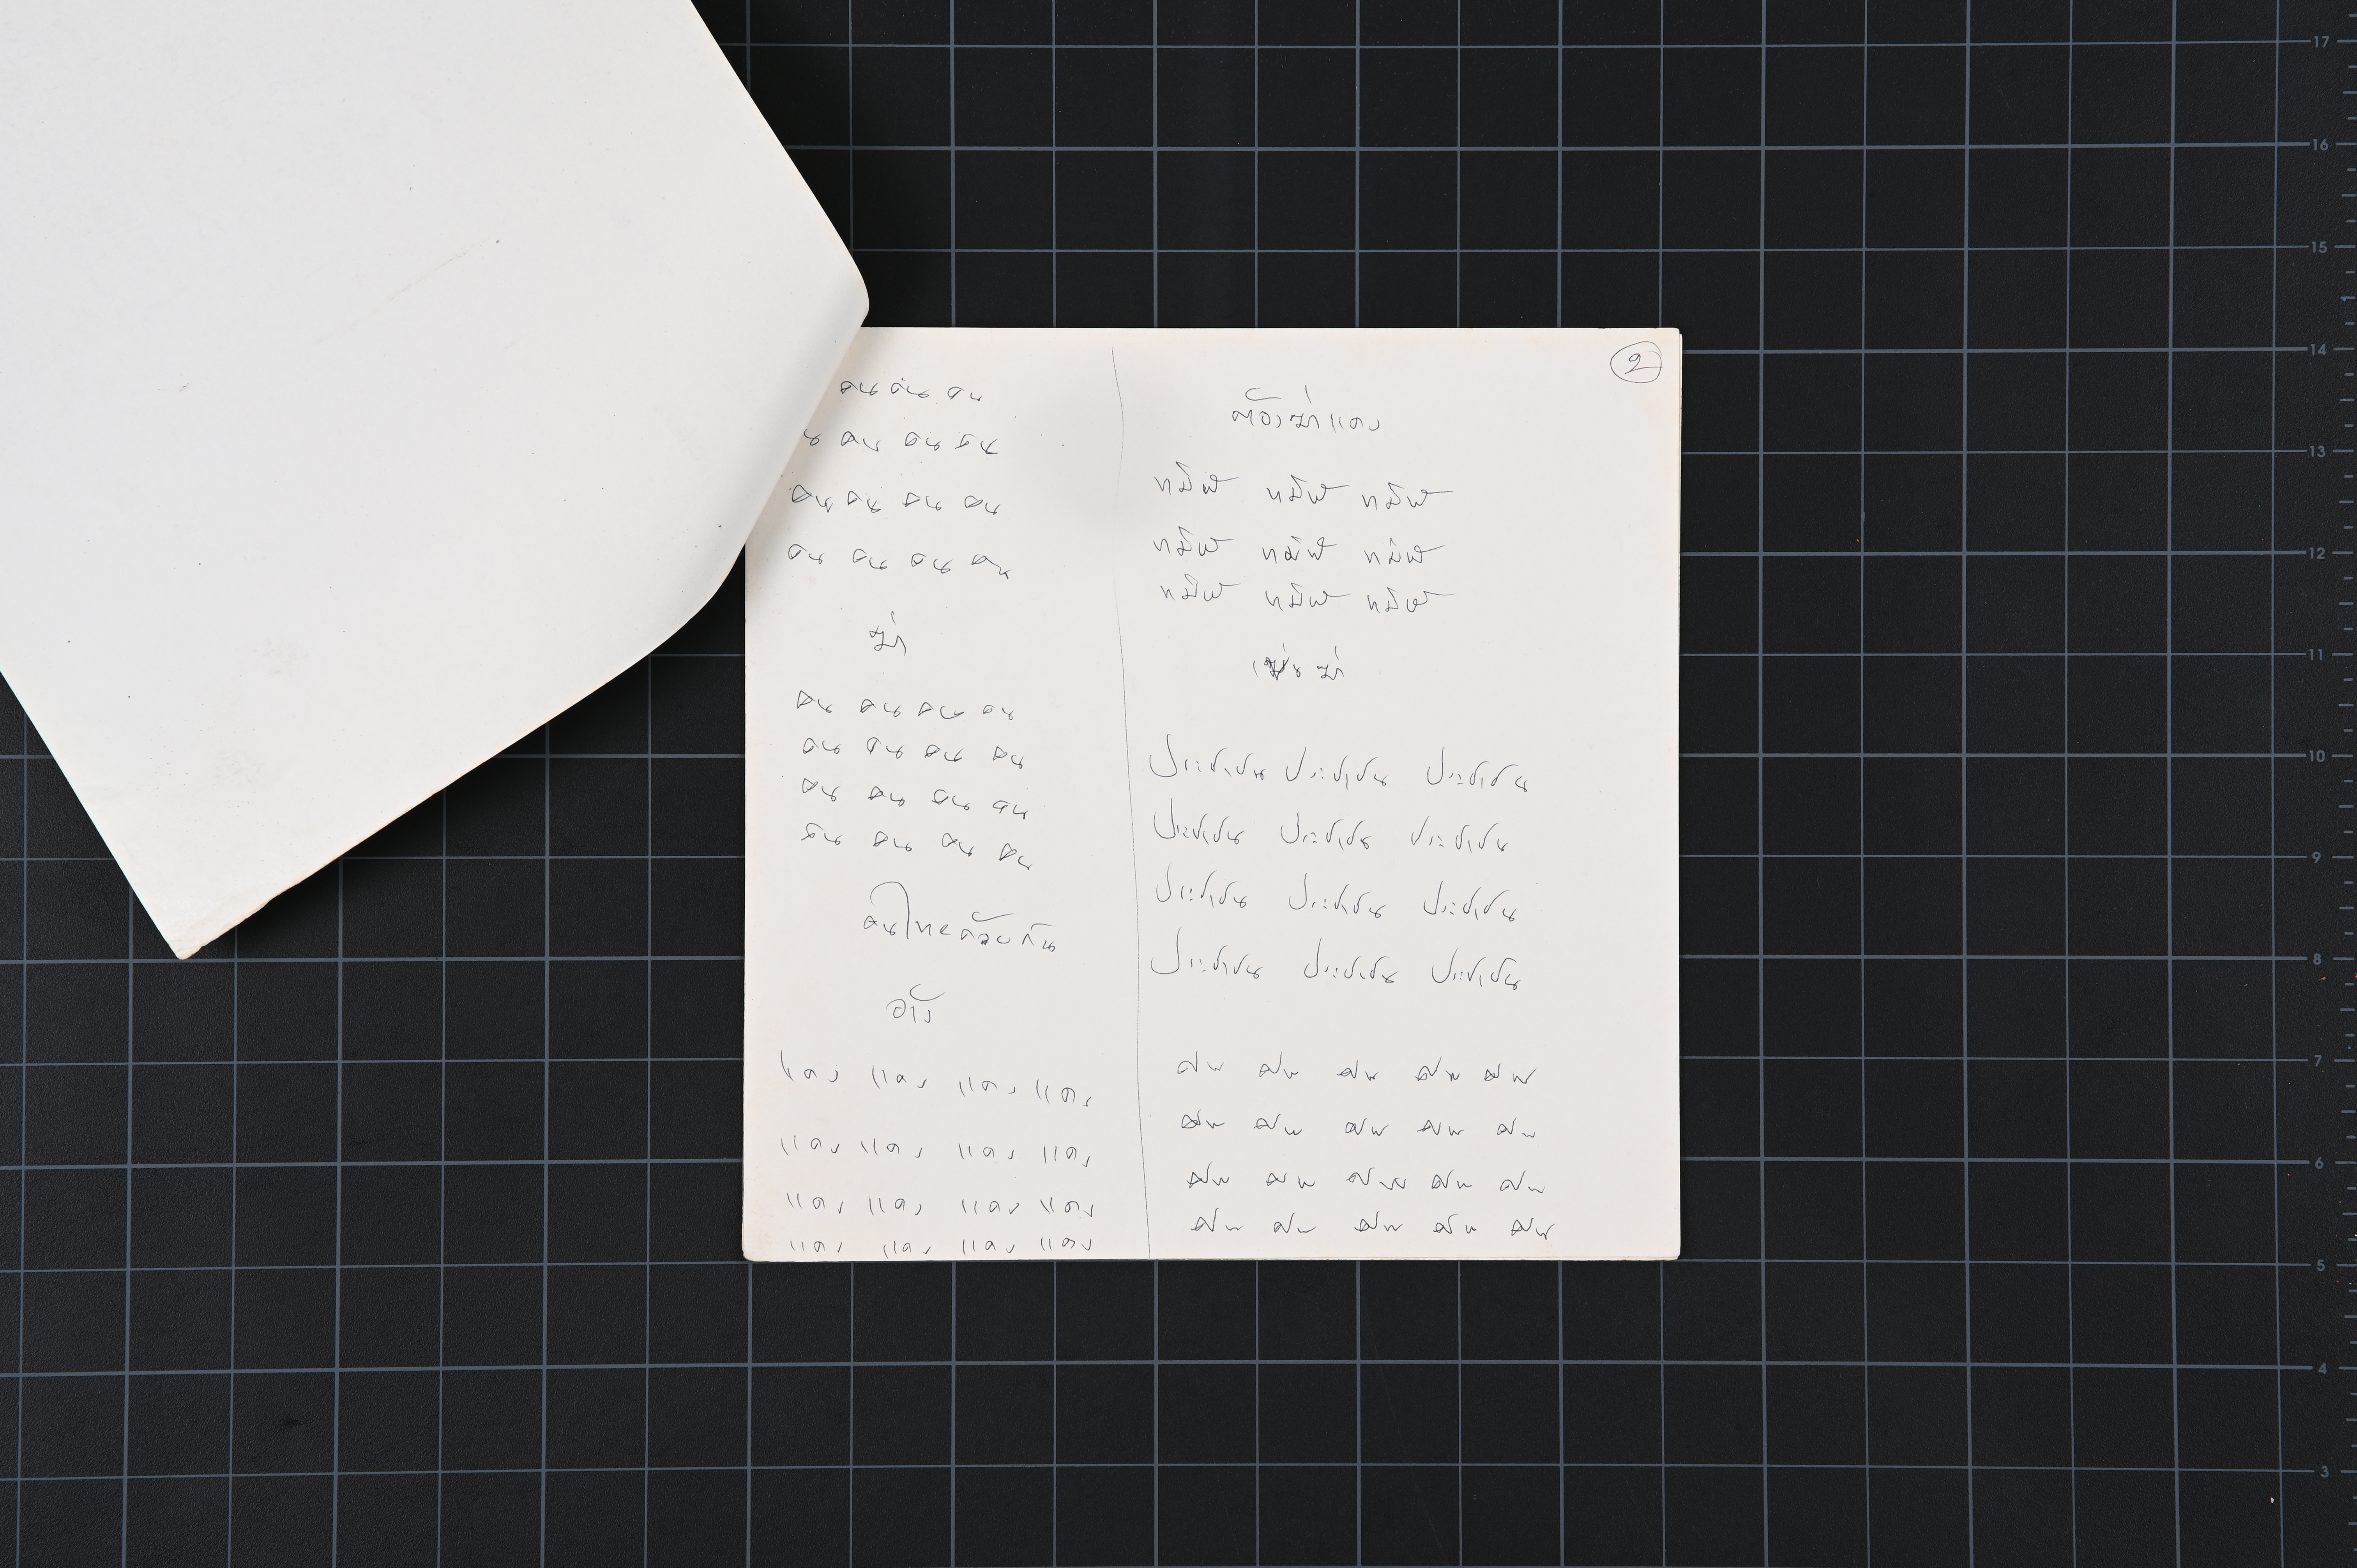 คน คน คน
น คน คน คน
คน คน คน คน
คน คน คน คน
ฆ่า
คน คน คน คน
คน คน คน คน
คน คน คน คน
คน คน คน คน
คนไทยด้วยกัน
อ้าง
แดง แดง แดง แดง
แดง แดง แดง แดง
แดง แดง แดง แดง
แดง แดง แดง แดง
2
ต้องฆ่าแดง
ทมิฬ ทมิฬ ทมิฬ
ทมิฬ ทมิฬ ทมิฬ
ทมิฬ ทมิฬ ทมิฬ
เข่นฆ่า
ประชาชน ประชาชน ประชาชน
ประชาชน ประชาชน ประชาชน
ประชาชน ประชาชน ประชาชน
ประชาชน ประชาชน ประชาชน
ศพ ศพ ศพ ศพ ศพ
ศพ ศพ ศพ ศพ ศพ
ศพ ศพ ศพ ศพ ศพ
ศพ ศพ ศพ ศพ ศพ
17
16
15
14
13
12
11
10
9
8
7
6
5
4
3